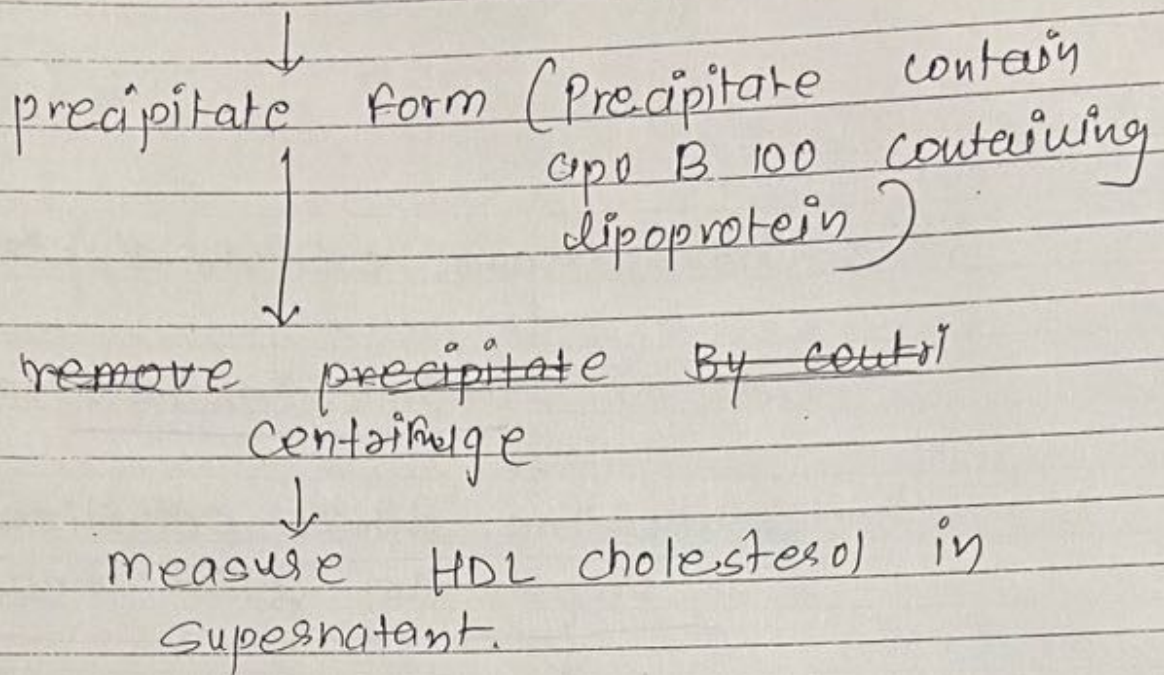 precipitate form (Precipitate contain
apo B 100 containing
lipoprotein)
remove precipitate By centri
centrifuge
measure HDL cholesterol in
supernatant.